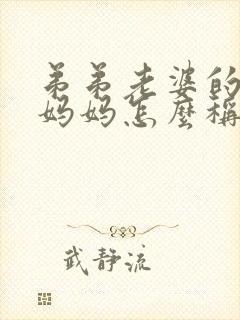 弟弟老婆的
妈妈怎麼稱
武静流